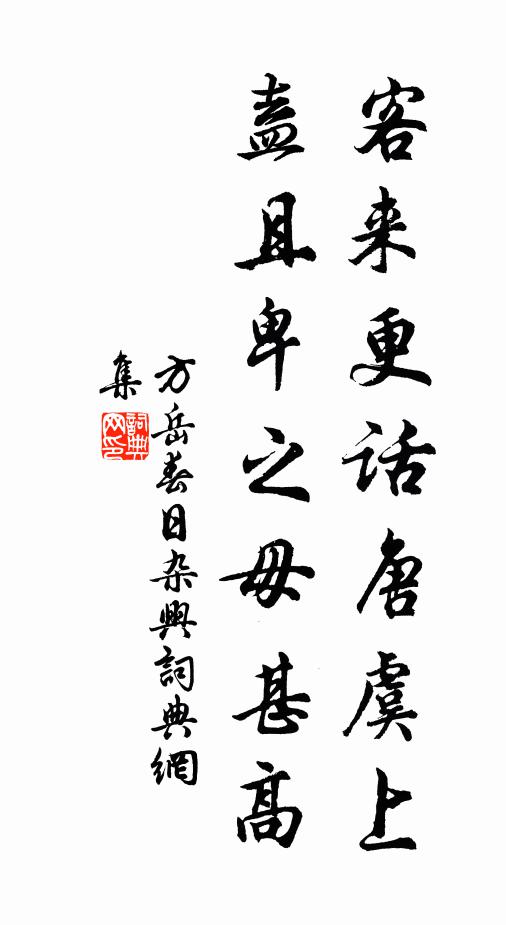 客来更话唐虞上
盍且卑之毋甚高
方岳春日杂興詞典網
集
詞典網印